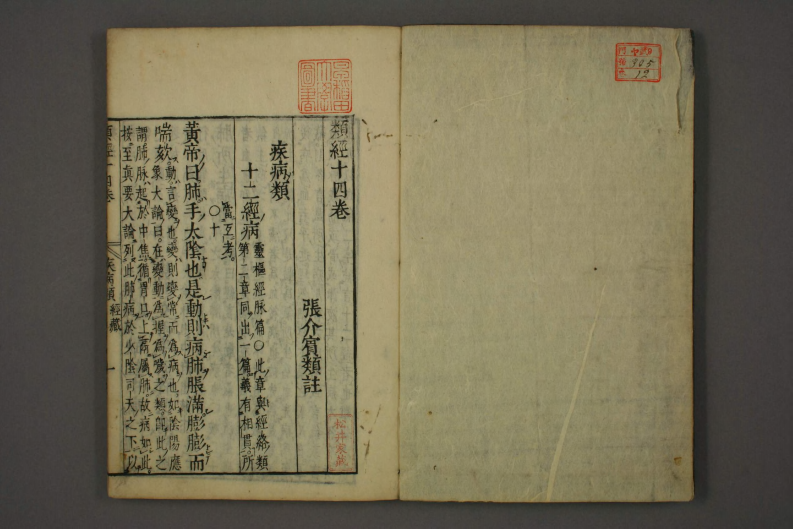 類經十四卷
張介賓類註
疾病類
十二經病
靈樞經脉篇○此章與經絡類
第二章同出一篇義有相貫所
當互考
○十
黃帝曰肺手太陰也是動則病肺脹滿膨膨而
喘欬
動言變也變則變常而為病也如陰陽應
象大論曰在變動為握為噦之類即此之
謂肺脉起於中焦循胃口上膈屬肺故病如此
按至真要大論列此肺病於少陰司天之下以
類經十四卷
疾病類 經藏
一
松井家藏
早稻田大學圖書
12